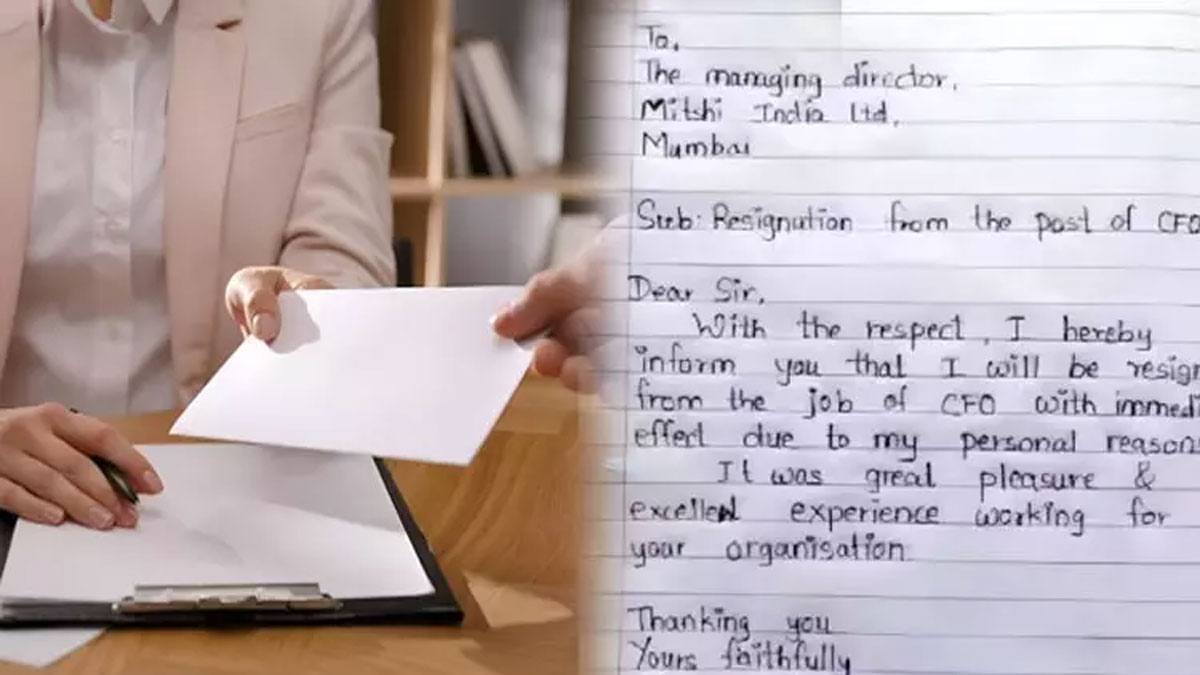 To,
The managing director,
Mitshi India Ltd,
Mumbai
Sub: Resignation from the post of CFO
Dear Sir,
With the respect, I hereby
inform you that I will be resign
from the job of CFO with immedi
effect due to my personal reasons
It was great pleasure &
excellent experience working for
your organisation
Thanking you
Yours faithfully